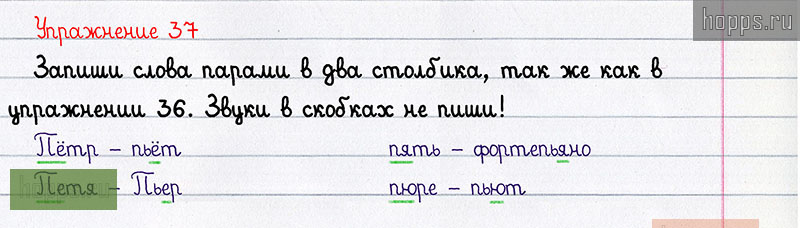 hopps.ru
Упражнение 37
Запиши слова парами в два столбика, так же как в
упражнении 36. Звуки в скобках не пиши!
Пётр – пьёт пять – фортепьяно
Петя – Пьер пюре – пьют